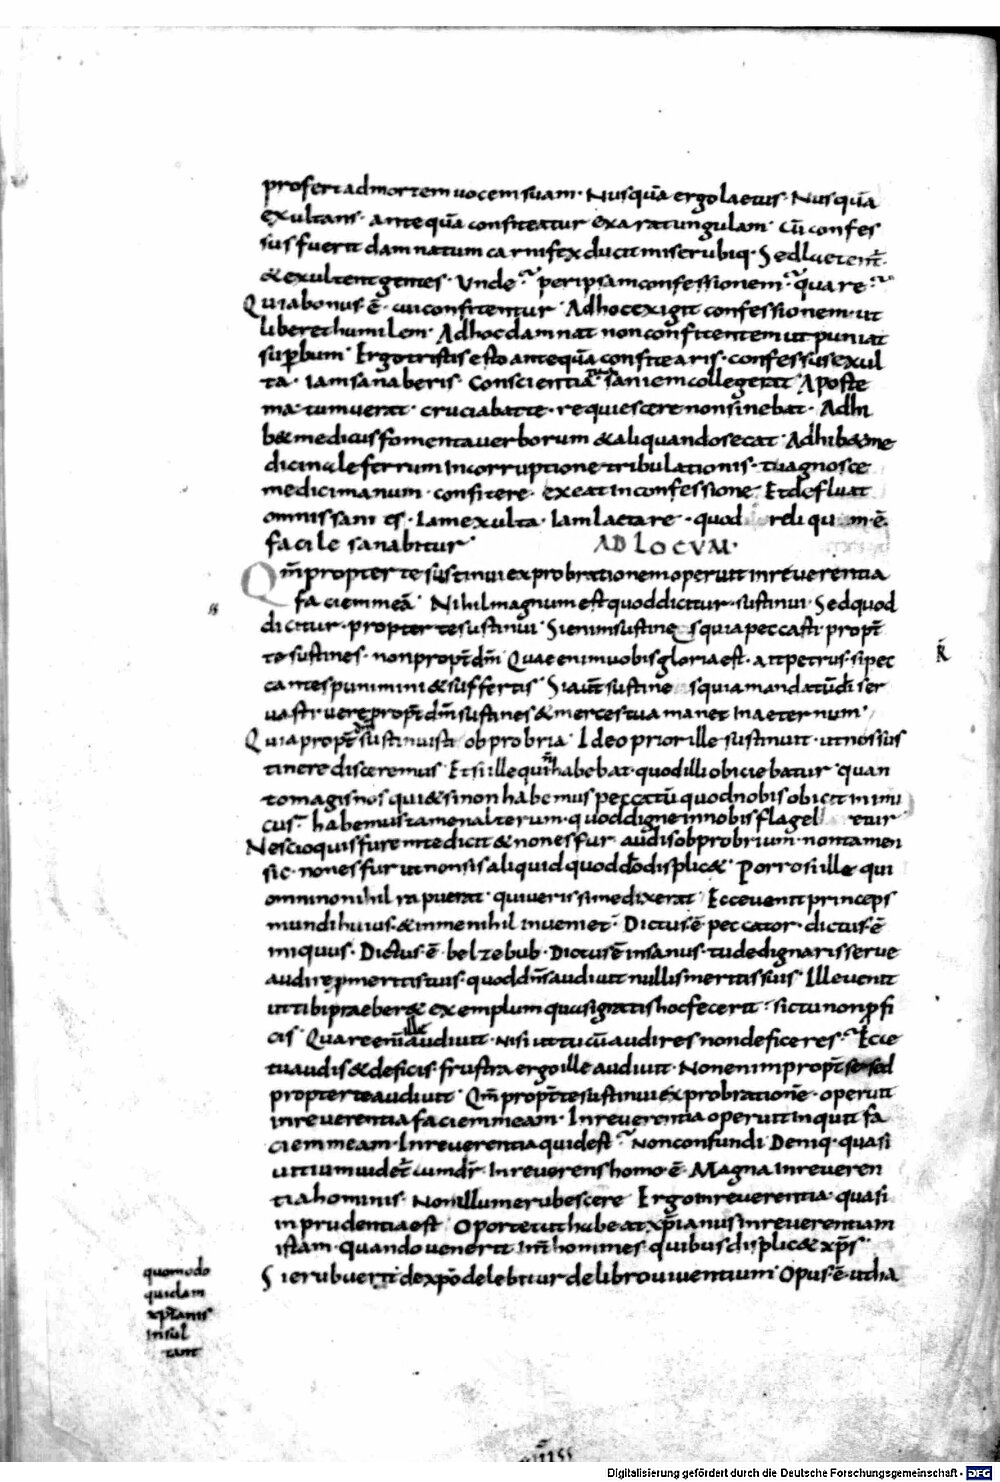 profert ad mortem uocem suam · Nusquā ergo laetus · Nusquā
exultans · antequā confiteatur exarat ungulam · Cū confes
sus fuerit damnatum carnifex ducit miser ubiq· Sed laetent̄
& exultent gentes · Unde · per ipsam confessionem · quare
Quia bonus ē· cui confitentur · Ad hoc exigit confessionem · ut
liberet humilem · Ad hoc damnat non confitentem ut puniat
sup̄bum · Ergo tristis esto antequā confitearis · confessus exul
ta · Iam sanaberis · Conscientia saniem collegerat · Aposte
ma tumuerat · cruciabat te · requiescere non sinebat · Adhi
b& medicus fomenta uerborum & aliquando secat · Adhib& me
dicinale ferrum in corruptione tribulationis · tu agnosce
medici manum · confitere · exeat in confessione & defluat
omnis sanies · Iam exulta · Iam laetare · quod reliquum ē·
facile sanabitur · AD LOCVM·
Qm̄ propter te sustinui exprobrationem operuit inreuerentia
faciem meā · Nihil magnum est quod dicitur · sustinui · Sed quod
dicitur · propter te sustinui · Si enim sustines quia peccasti · propt̄
te sustines · non propt̄ dm̄ Quae enim uobis gloria est · ait petrus · si pec
cantes punimini & suffertis · Si aut̄ sustines quia mandatū dī ser
uasti uere propt̄ dm̄ sustines & merces tua manet in aeternum ·
Quia propt̄ te sustinuisti obprobria · Ideo prior ille sustinuit · ut nos sus
tinere disceremus · Et si ille qui n̄ habebat · quod illi obiciebatur · quan
to magis nos qui & si non habemus peccatū quod nobis obicit inimi
cus · habemus tamen alterum · quod digne in nobis flagelletur
Nescio quis furem te dicit & non es fur · audis obprobrium · non tamen
sic · non es fur ut non sis aliquid quod dō displic& · Porro si ille qui
omnino nihil rapuerat · qui uerissime dixerat · Ecce uenit princeps
mundi huius · & in me nihil inueniet · Dictus ē peccator · dictus ē
iniquus · Dictus ē belzebub · Dictus ē insanus · tu dedignaris serue
audire p̄ meritis tuis · quod dn̄s audiuit nullis meritis suis · Ille uenit
ut tibi praeber& exemplum quasi gratis hoc fecerit · si tu non p̄fi
cis · Quare enī ille audiuit · nisi ut tu cū audires non deficeres · Ecce
tu audis & deficis · frustra ergo ille audiuit · Non enim propt̄ se sed
propter te audiuit · Qm̄ propt̄ te sustinui exprobrationē · operuit
inreuerentia faciem meam · Inreuerentia operuit inquit fa
ciem meam · Inreuerentia quid est · Non confundi Deniq· quasi
uitium uidet̄ cum dr̄ · Inreuerens homo ē · Magna inreueren
tia hominis · Non illum erubescere Ergo inreuerentia · quasi
inprudentia est Oportet ut habeat xp̄ianus inreuerentiam
istam · quando uenerit int̄ homines quibus displic& xp̄s ·
Si erubuerit de xp̄o delebitur de libro uiuentium · Opus ē · ut ha
R̄
quomodo
quidam
xp̄ianis
insul
tant